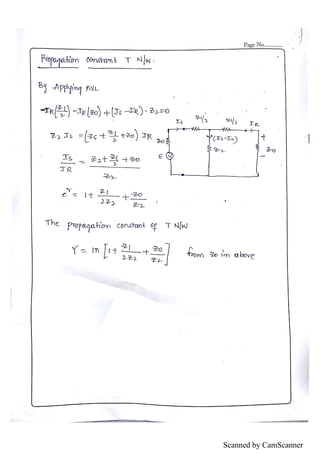 Page No..........
Propagation constant T N/W.
By Applying KVL
-IR(Z1/2) - IR(Z0) + (IS - IR) · Z2 = 0
Z2 IS = (Z2 + Z1/2 + Z0) IR
IS/IR = (Z2 + Z1/2 + Z0)/Z2
e^γ = 1 + Z1/2Z2 + Z0/Z2
IS Z1/2 Z1/2 IR
Z0 ↓(IS-IR) +
E Z2 Z0
-
The propagation constant of T N/W
γ = ln [1 + Z1/2Z2 + Z0/Z2] from Z0 in above
Scanned by CamScanner